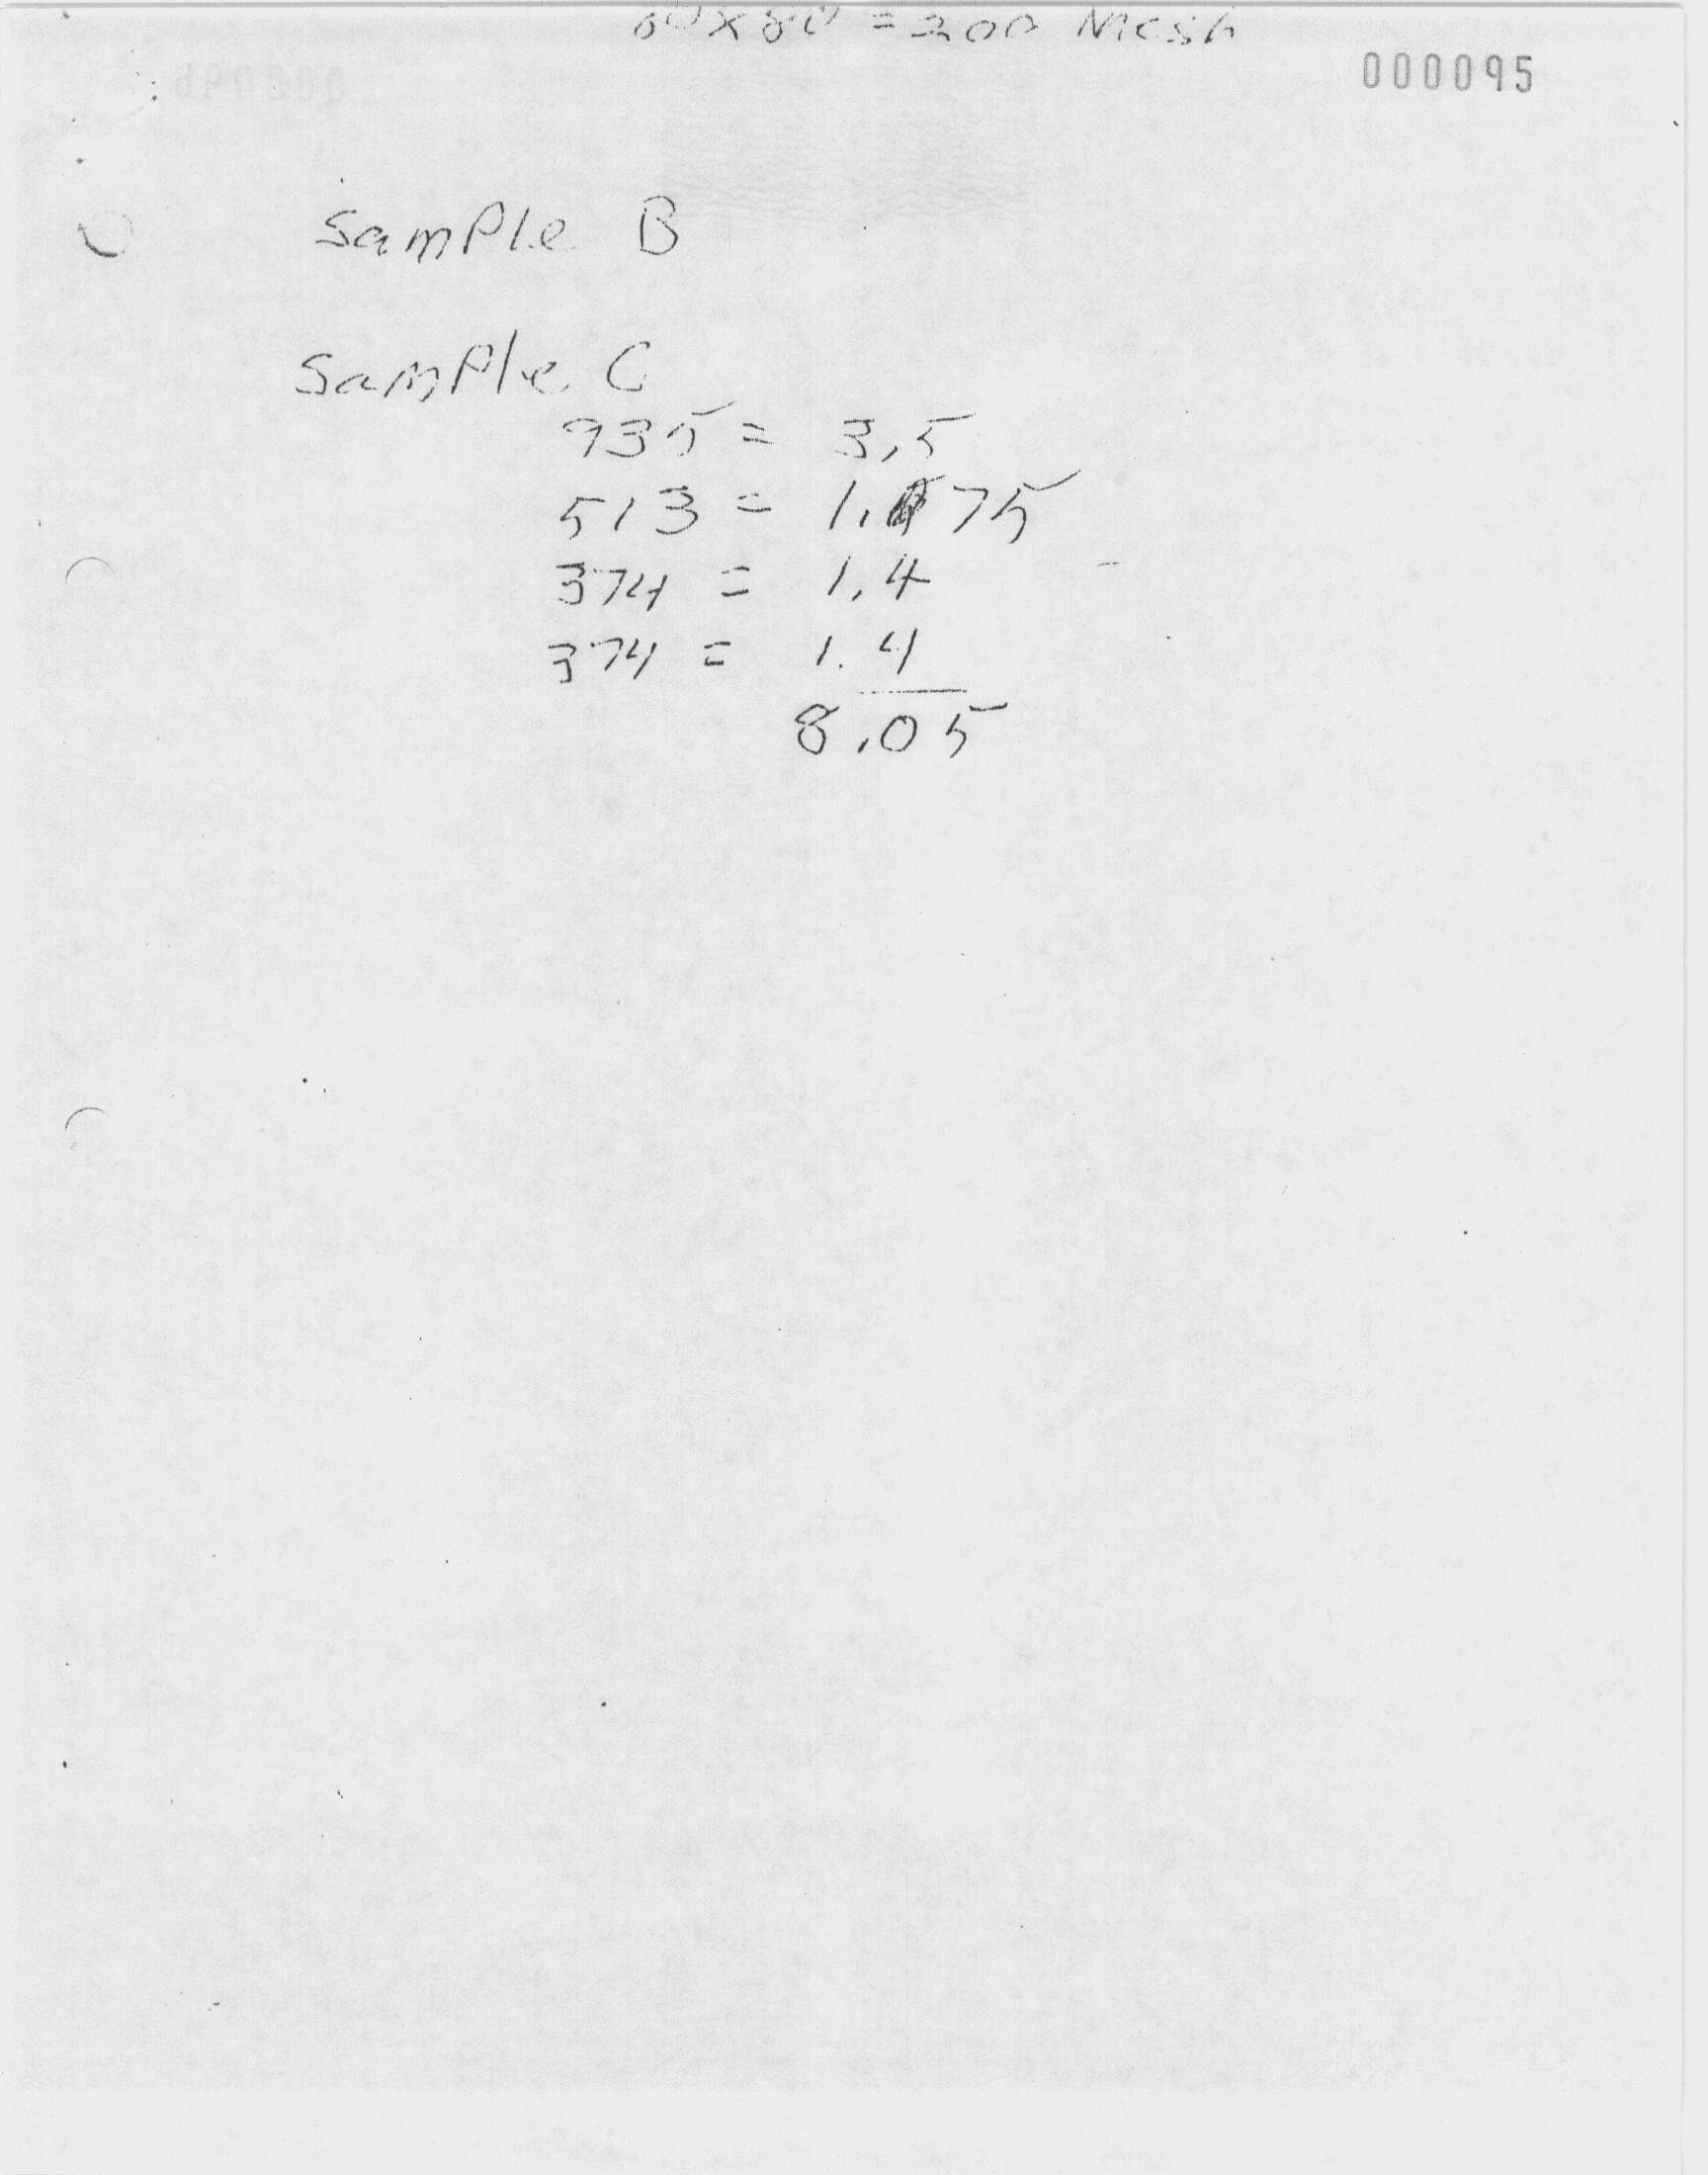 = 200 Mesh
000095
Sample B
Sample C
935 = 3.5
513 = 1.75
374 = 1.4
374 = 1.4
8.05